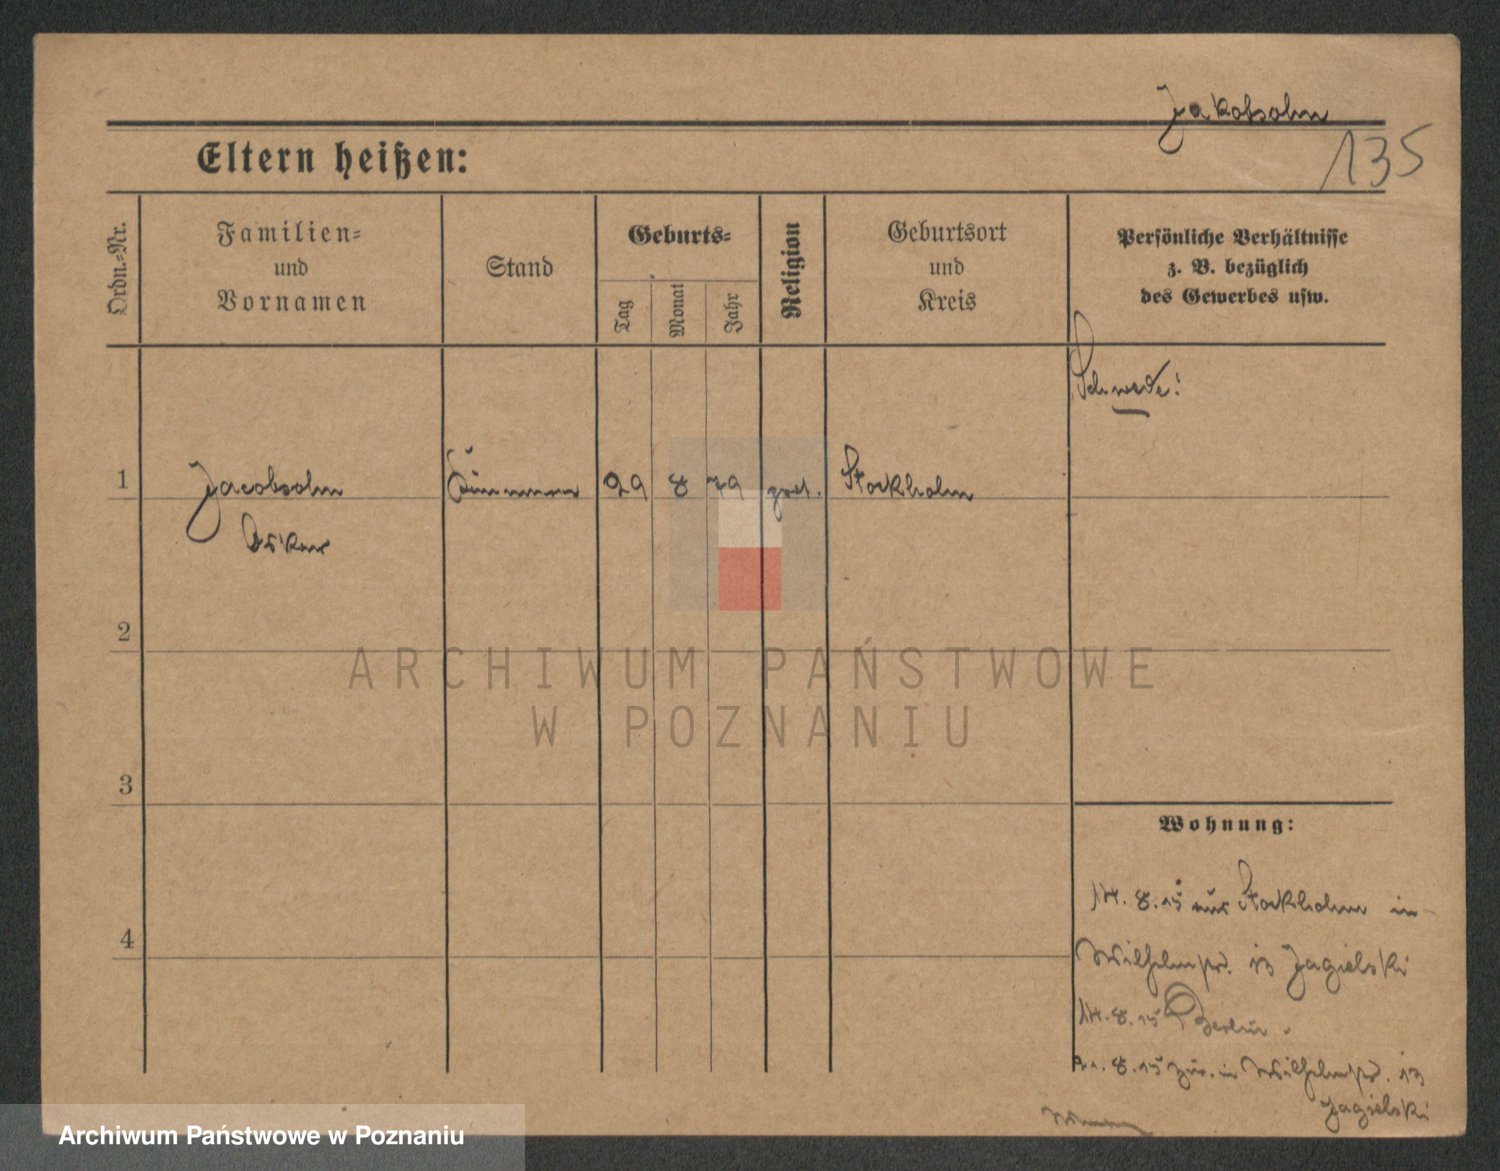 Jakobsohn
135
Eltern heißen:
Ordn.-Nr.
Familien-
und
Vornamen
Stand
Geburts-
Tag
Monat
Jahr
Religion
Geburtsort
und
Kreis
Persönliche Verhältnisse
z. B. bezüglich
des Gewerbes usw.
Schwede!
1 Jacobsohn 29 8 79 Stockholm
Oskar
2
ARCHIWUM PAŃSTWOWE
W POZNANIU
3
Wohnung:
4
14. 8. 15 aus Stockholm in
Wilhelmpl. 13 Jagielski
14. 8. 15 Berlin.
21. 8. 15 zur. in Wilhelmpl. 13
Jagielski
Archiwum Państwowe w Poznaniu